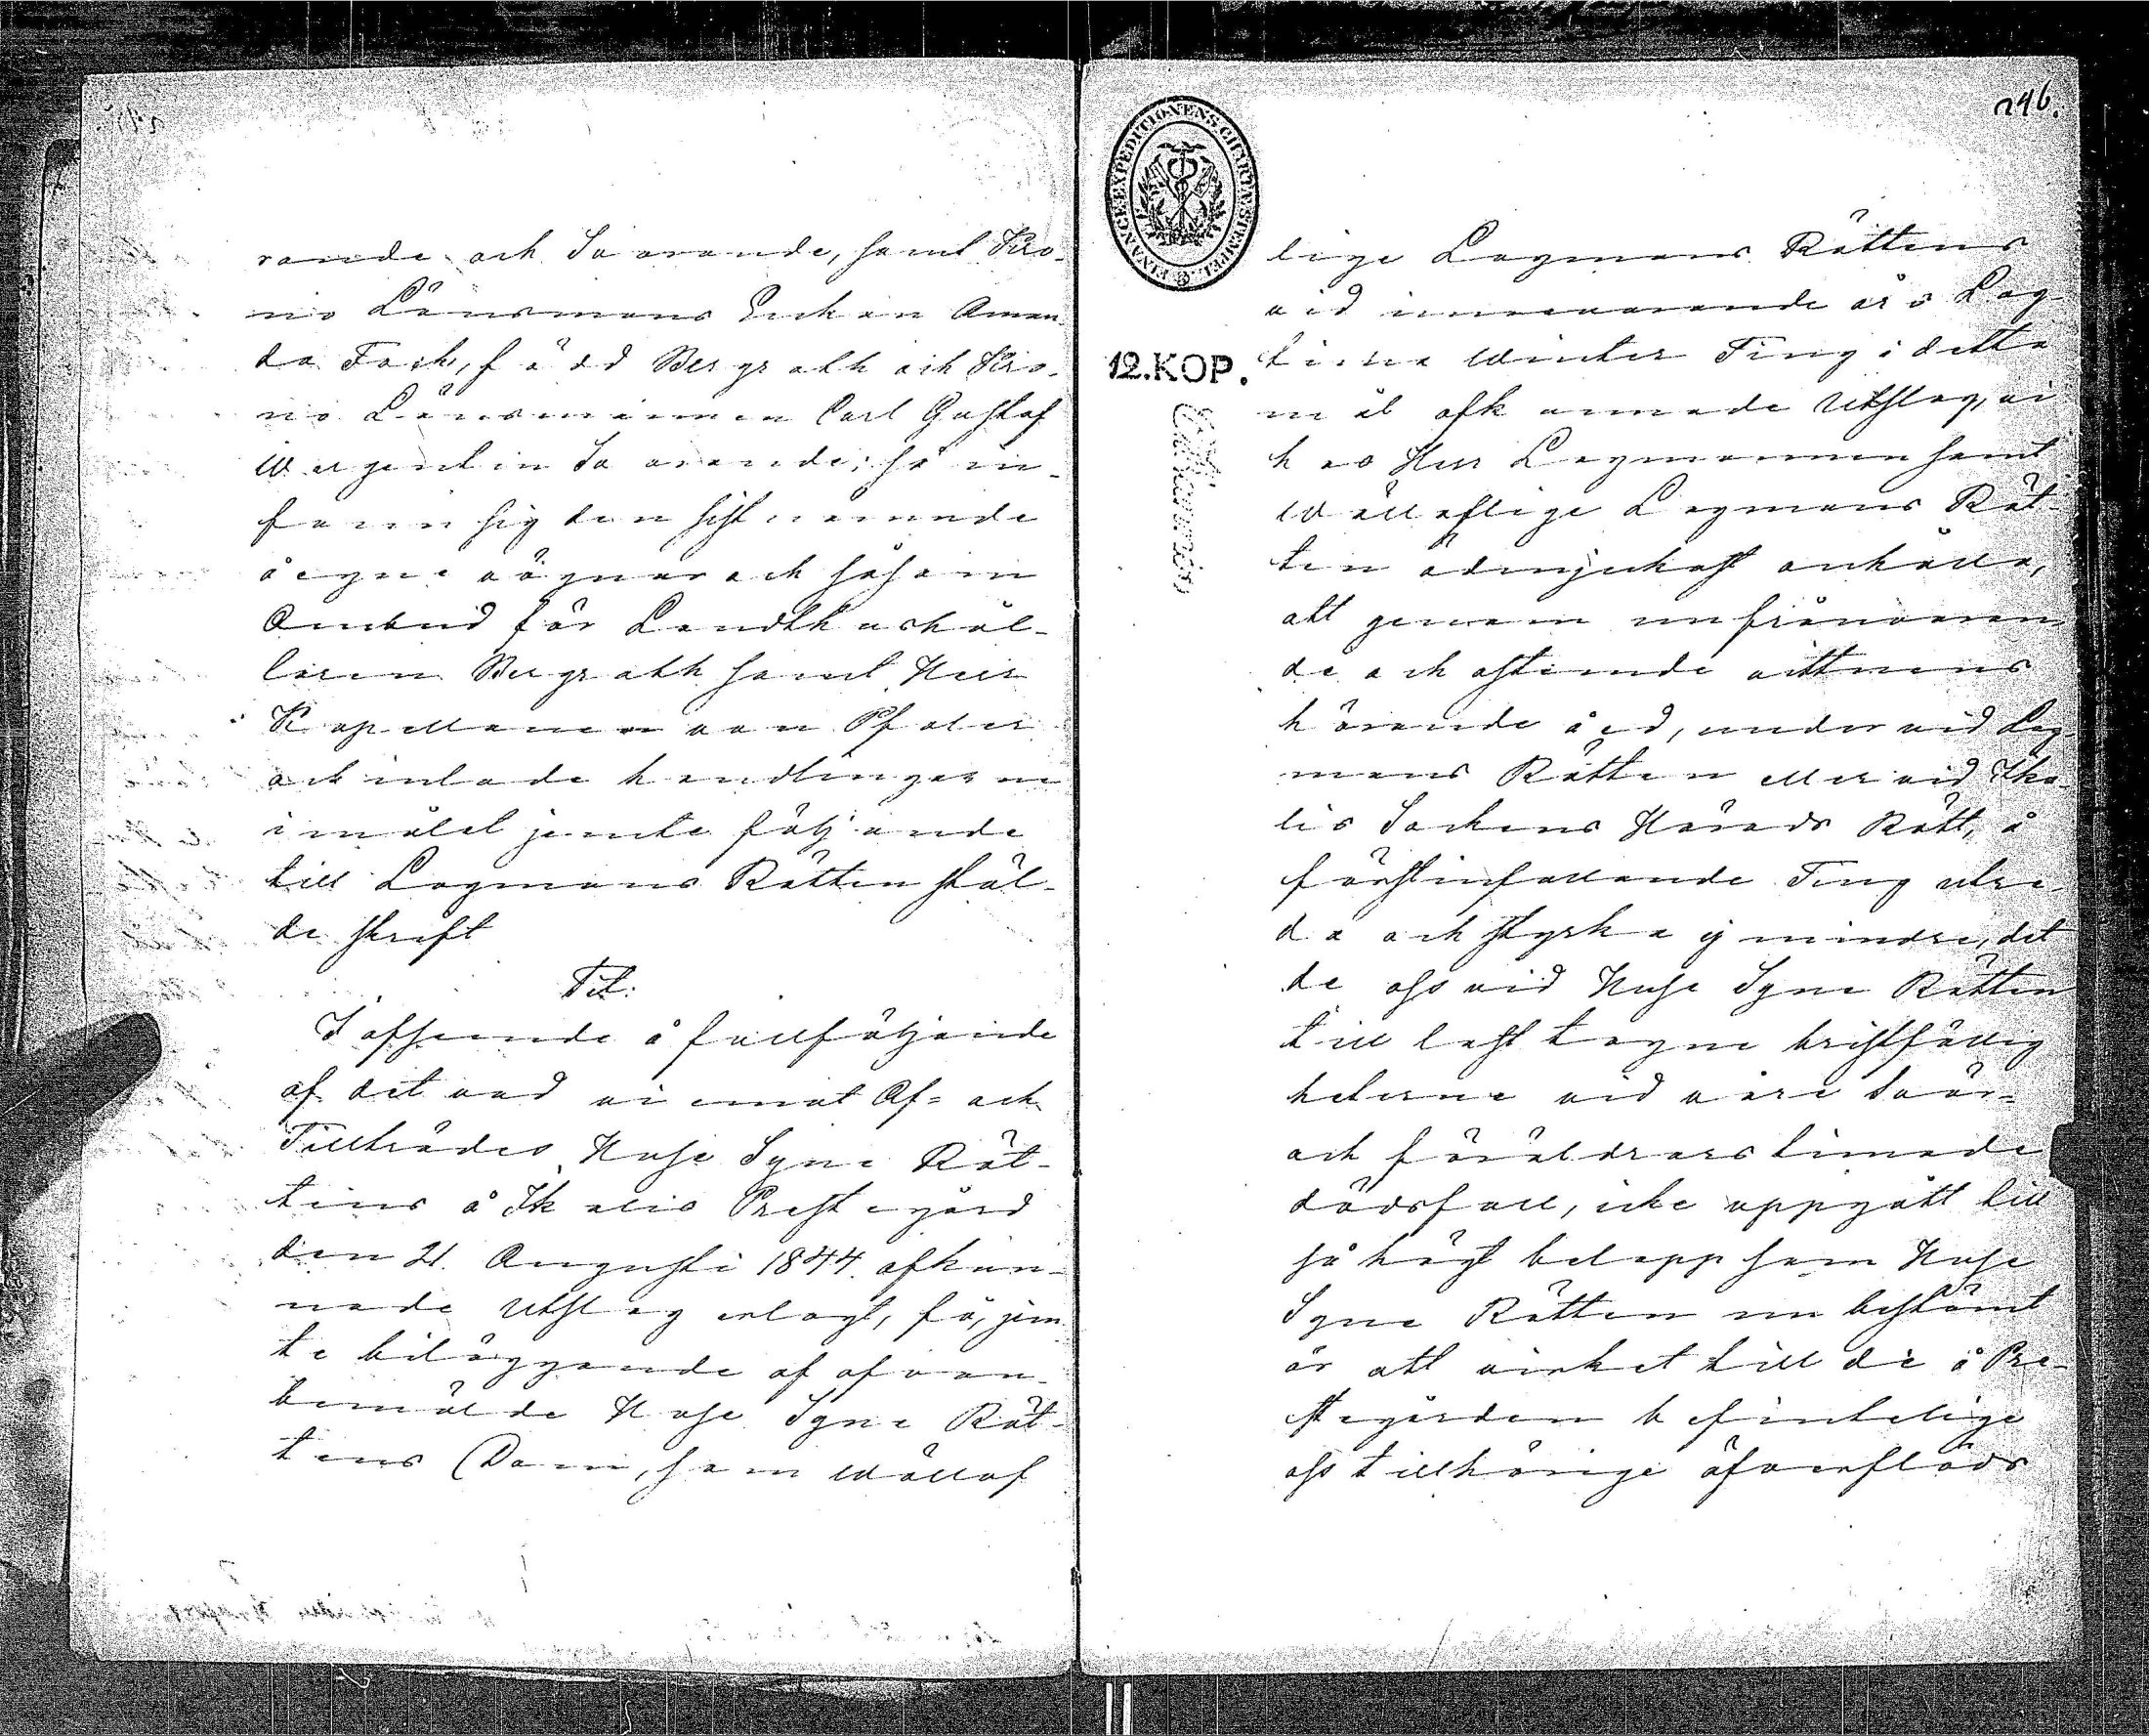 rande och Svarande, samt Kro-
no Länsmans Enkan Aman-
da Foch, född Bergroth och Kro-
no Länsmannen Carl Gustaf
Wargentin Svarande; så in-
fann sig den sistnämnde
å egne vägnar och såsom
Ombud för Landthushål-
laren Bergroth samt Herr
Kapellanen von Pfaler
och inlade handlingarne
i målet jemte följande
till Lagmans Rätten stäl-
de skrift
Tit:
I afseende å fullföljande
af det vad vi emot Af- och
Tillträdes Huse Syne Rät-
tens å Ikalis Prestegård
den 21. Augusti 1844. afkun-
nade Utslag erlagt, få, jem-
te biläggande af ofvan-
bemälde Huse Syne Rät-
tens Dom, som Wällof
246.
FINANCE EXPEDITIONENS CHARTÆ STEMPEL
12. KOP.
lige Lagmans Rättens
vid innevarande års Lag-
tima Winter Ting i detta
mål afkunnade Utslag, vi
hos Herr Lagmannen samt
Wälloflige Lagmans Rät-
ten ödmjukast anhålla,
att genom nu frånvaran-
de och ostämde vittnens
hörande å ed, under vid Lag-
mans Rätten eller vid Ika-
lis Sockens Härads Rätt, å
förstinfallande Ting utre-
da och styrka ej mindre, det
de oss vid Huse Syne Rätten
till last tagne bristfällig
heterne vid våre Svär-
och föräldrars timade
dödsfall, icke uppgått till
så högt belopp som Huse
Syne Rätten nu bestämt
än att virket till de å Pre-
stegården befinteliga
oss tillhörige öfverflöds